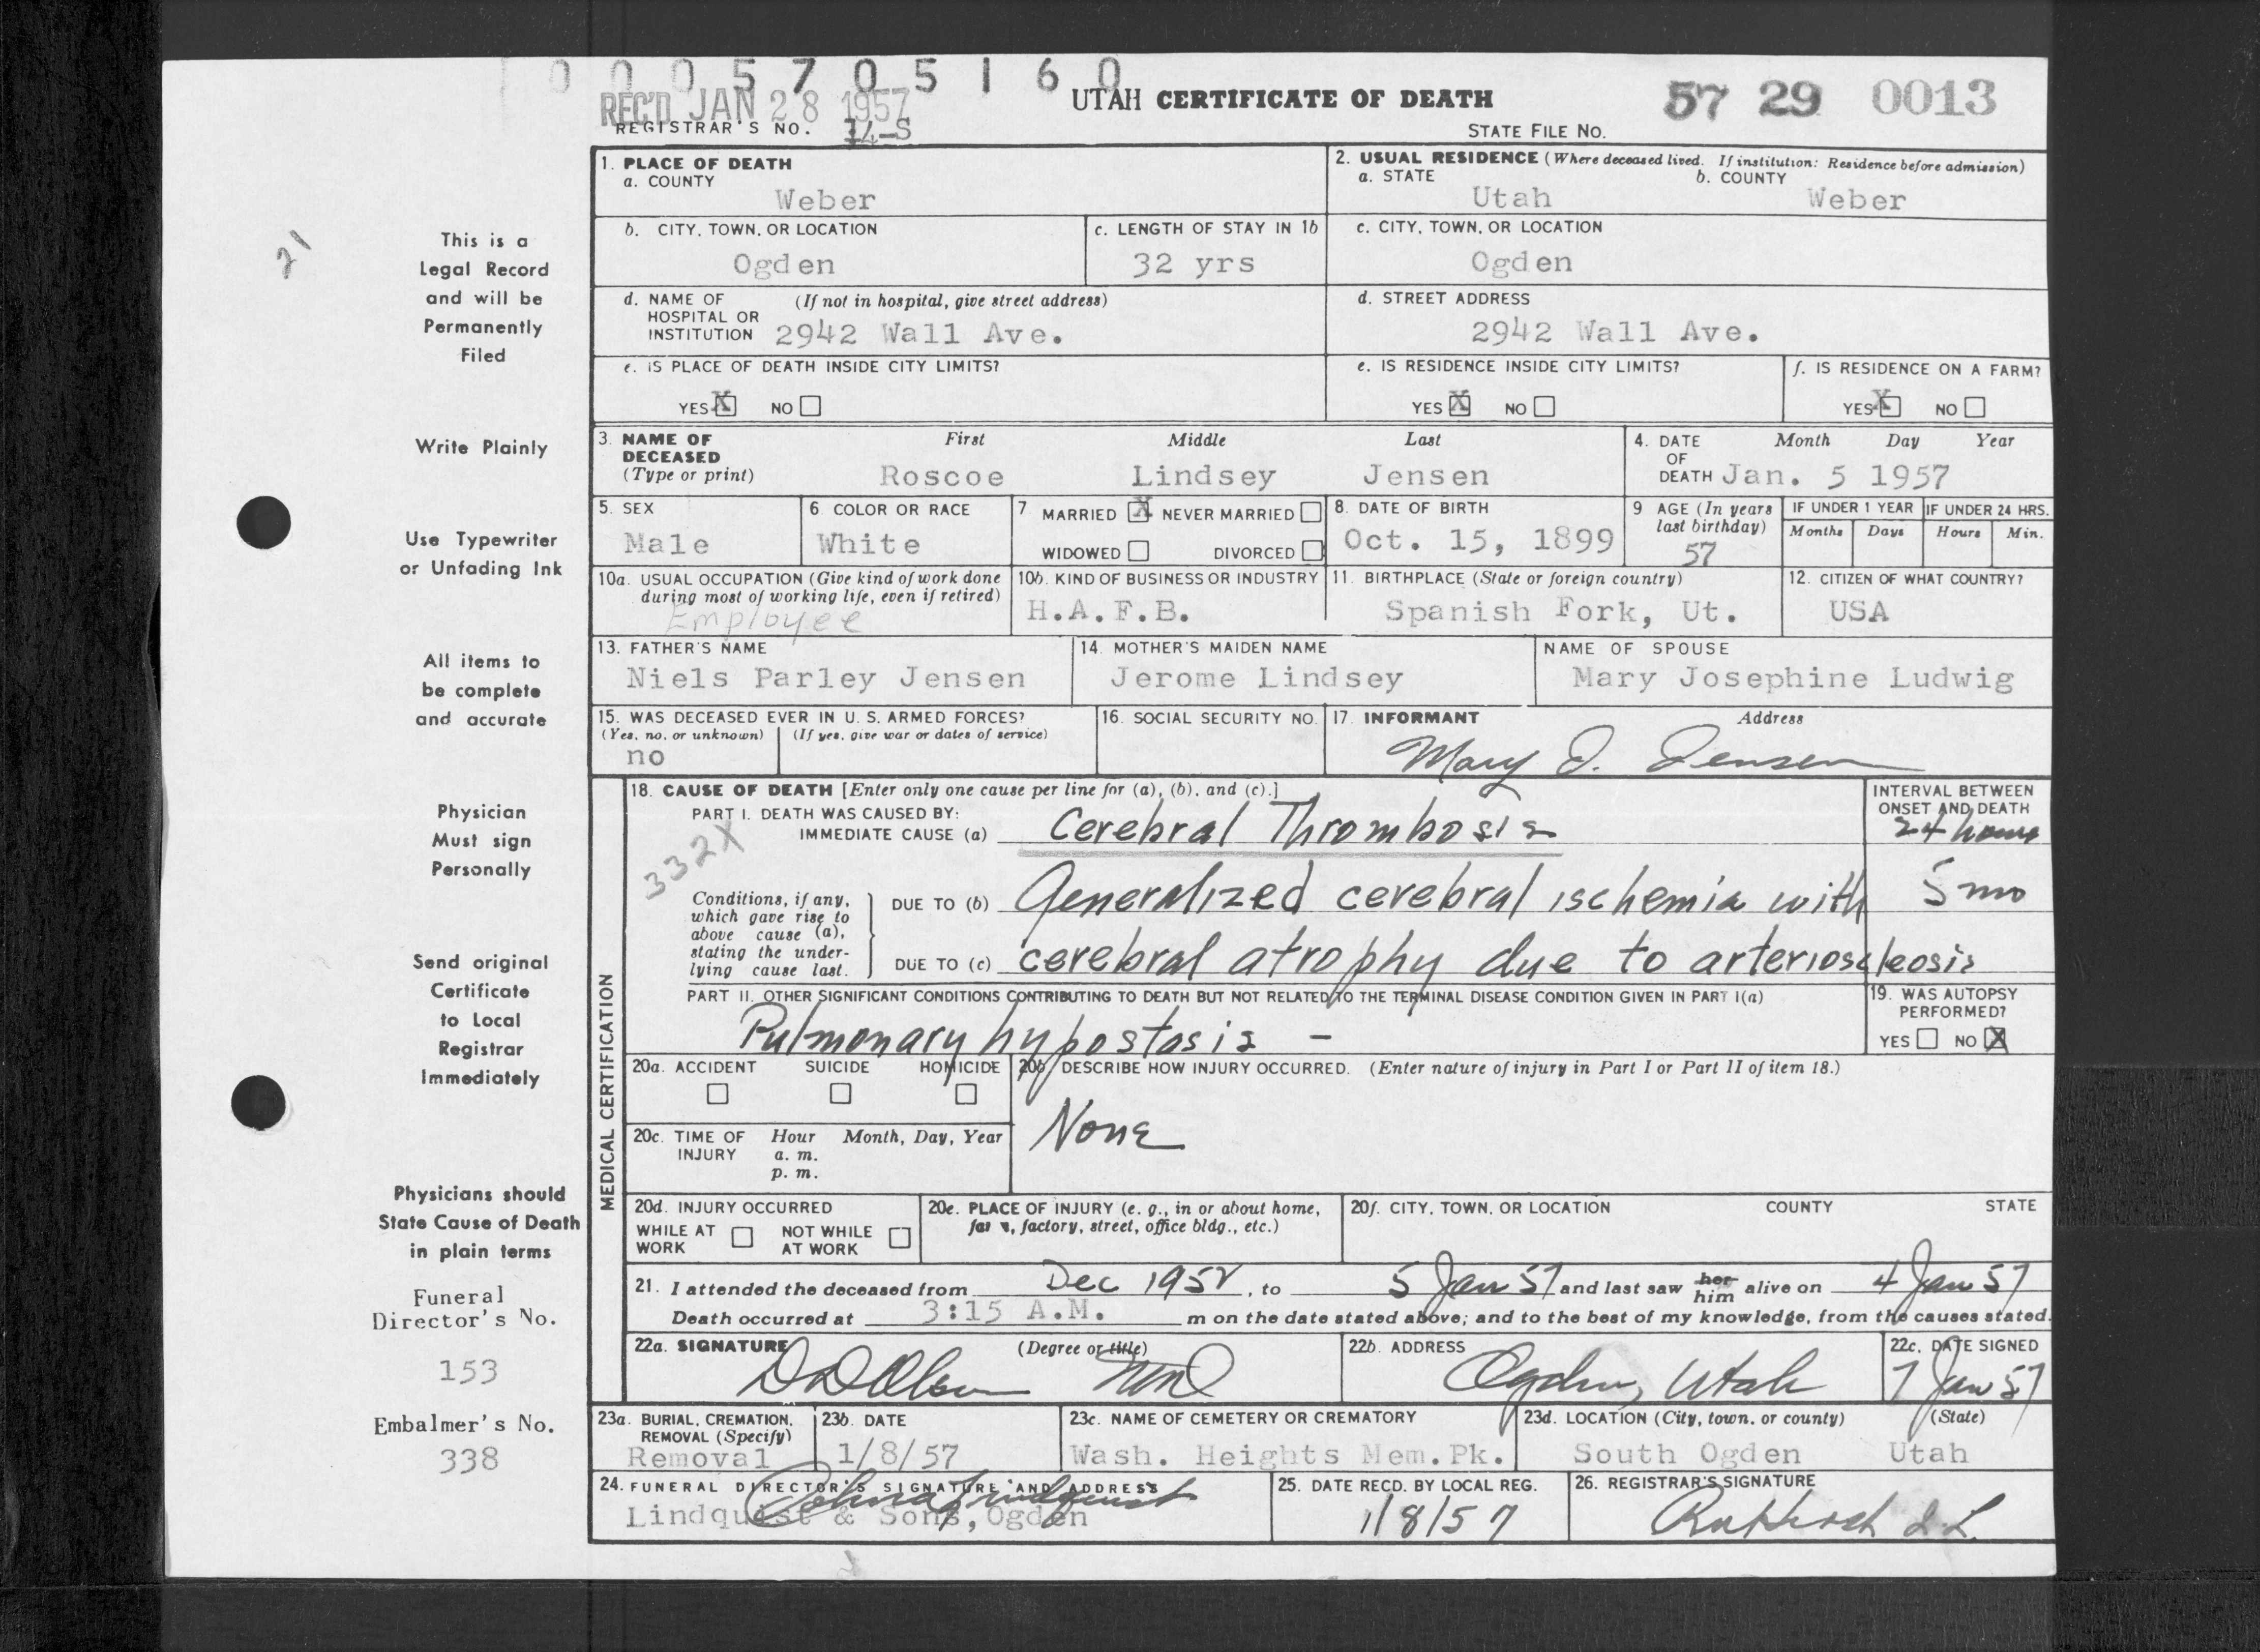 0 0 0 5 7 0 5 1 6 0
REC'D JAN 28 1957
UTAH CERTIFICATE OF DEATH
57 29 0013
REGISTRAR'S NO. 14-S
STATE FILE NO.
21
This is a
Legal Record
and will be
Permanently
Filed
Write Plainly
Use Typewriter
or Unfading Ink
All items to
be complete
and accurate
Physician
Must sign
Personally
Send original
Certificate
to Local
Registrar
Immediately
Physicians should
State Cause of Death
in plain terms
Funeral
Director's No.
153
Embalmer's No.
338
1. PLACE OF DEATH
a. COUNTY
Weber
2. USUAL RESIDENCE (Where deceased lived. If institution: Residence before admission)
a. STATE b. COUNTY
Utah Weber
b. CITY, TOWN, OR LOCATION
Ogden
c. LENGTH OF STAY IN 1b
32 yrs
c. CITY, TOWN, OR LOCATION
Ogden
d. NAME OF (If not in hospital, give street address)
HOSPITAL OR
INSTITUTION 2942 Wall Ave.
d. STREET ADDRESS
2942 Wall Ave.
e. IS PLACE OF DEATH INSIDE CITY LIMITS?
YES X NO
e. IS RESIDENCE INSIDE CITY LIMITS?
YES X NO
f. IS RESIDENCE ON A FARM?
YES X NO
3. NAME OF First Middle Last
DECEASED
(Type or print) Roscoe Lindsey Jensen
4. DATE Month Day Year
OF
DEATH Jan. 5 1957
5. SEX
Male
6. COLOR OR RACE
White
7 MARRIED X NEVER MARRIED
WIDOWED DIVORCED
8. DATE OF BIRTH
Oct. 15, 1899
9 AGE (In years
last birthday)
57
IF UNDER 1 YEAR IF UNDER 24 HRS.
Months Days Hours Min.
10a. USUAL OCCUPATION (Give kind of work done
during most of working life, even if retired)
Employee
10b. KIND OF BUSINESS OR INDUSTRY
H.A.F.B.
11. BIRTHPLACE (State or foreign country)
Spanish Fork, Ut.
12. CITIZEN OF WHAT COUNTRY?
USA
13. FATHER'S NAME
Niels Parley Jensen
14. MOTHER'S MAIDEN NAME
Jerome Lindsey
NAME OF SPOUSE
Mary Josephine Ludwig
15. WAS DECEASED EVER IN U. S. ARMED FORCES?
(Yes, no, or unknown) (If yes, give war or dates of service)
no
16. SOCIAL SECURITY NO.
17. INFORMANT Address
Mary J. Jensen
MEDICAL CERTIFICATION
18. CAUSE OF DEATH [Enter only one cause per line for (a), (b), and (c).]
INTERVAL BETWEEN
ONSET AND DEATH
PART I. DEATH WAS CAUSED BY:
IMMEDIATE CAUSE (a) Cerebral Thrombosis 24 hours
332X
Conditions, if any,
which gave rise to
above cause (a),
stating the under-
lying cause last.
DUE TO (b) Generalized cerebral ischemia with 5 mo
DUE TO (c) cerebral atrophy due to arterioscleosis
PART II. OTHER SIGNIFICANT CONDITIONS CONTRIBUTING TO DEATH BUT NOT RELATED TO THE TERMINAL DISEASE CONDITION GIVEN IN PART I(a)
Pulmonary hypostasis -
19. WAS AUTOPSY
PERFORMED?
YES NO X
20a. ACCIDENT SUICIDE HOMICIDE
20b. DESCRIBE HOW INJURY OCCURRED. (Enter nature of injury in Part I or Part II of item 18.)
None
20c. TIME OF Hour Month, Day, Year
INJURY a. m.
p. m.
20d. INJURY OCCURRED
WHILE AT NOT WHILE
WORK AT WORK
20e. PLACE OF INJURY (e. g., in or about home,
farm, factory, street, office bldg., etc.)
20f. CITY, TOWN, OR LOCATION COUNTY STATE
21. I attended the deceased from Dec 1952, to 5 Jan 57 and last saw her him alive on 4 Jan 57
Death occurred at 3:15 A.M. m on the date stated above; and to the best of my knowledge, from the causes stated.
22a. SIGNATURE (Degree or title)
D D Olson MD
22b. ADDRESS
Ogden, Utah
22c. DATE SIGNED
7 Jan 57
23a. BURIAL, CREMATION,
REMOVAL (Specify)
Removal
23b. DATE
1/8/57
23c. NAME OF CEMETERY OR CREMATORY
Wash. Heights Mem.Pk.
23d. LOCATION (City, town, or county) (State)
South Ogden Utah
24. FUNERAL DIRECTOR'S SIGNATURE AND ADDRESS
Lindquist & Sons, Ogden
25. DATE RECD. BY LOCAL REG.
1/8/57
26. REGISTRAR'S SIGNATURE